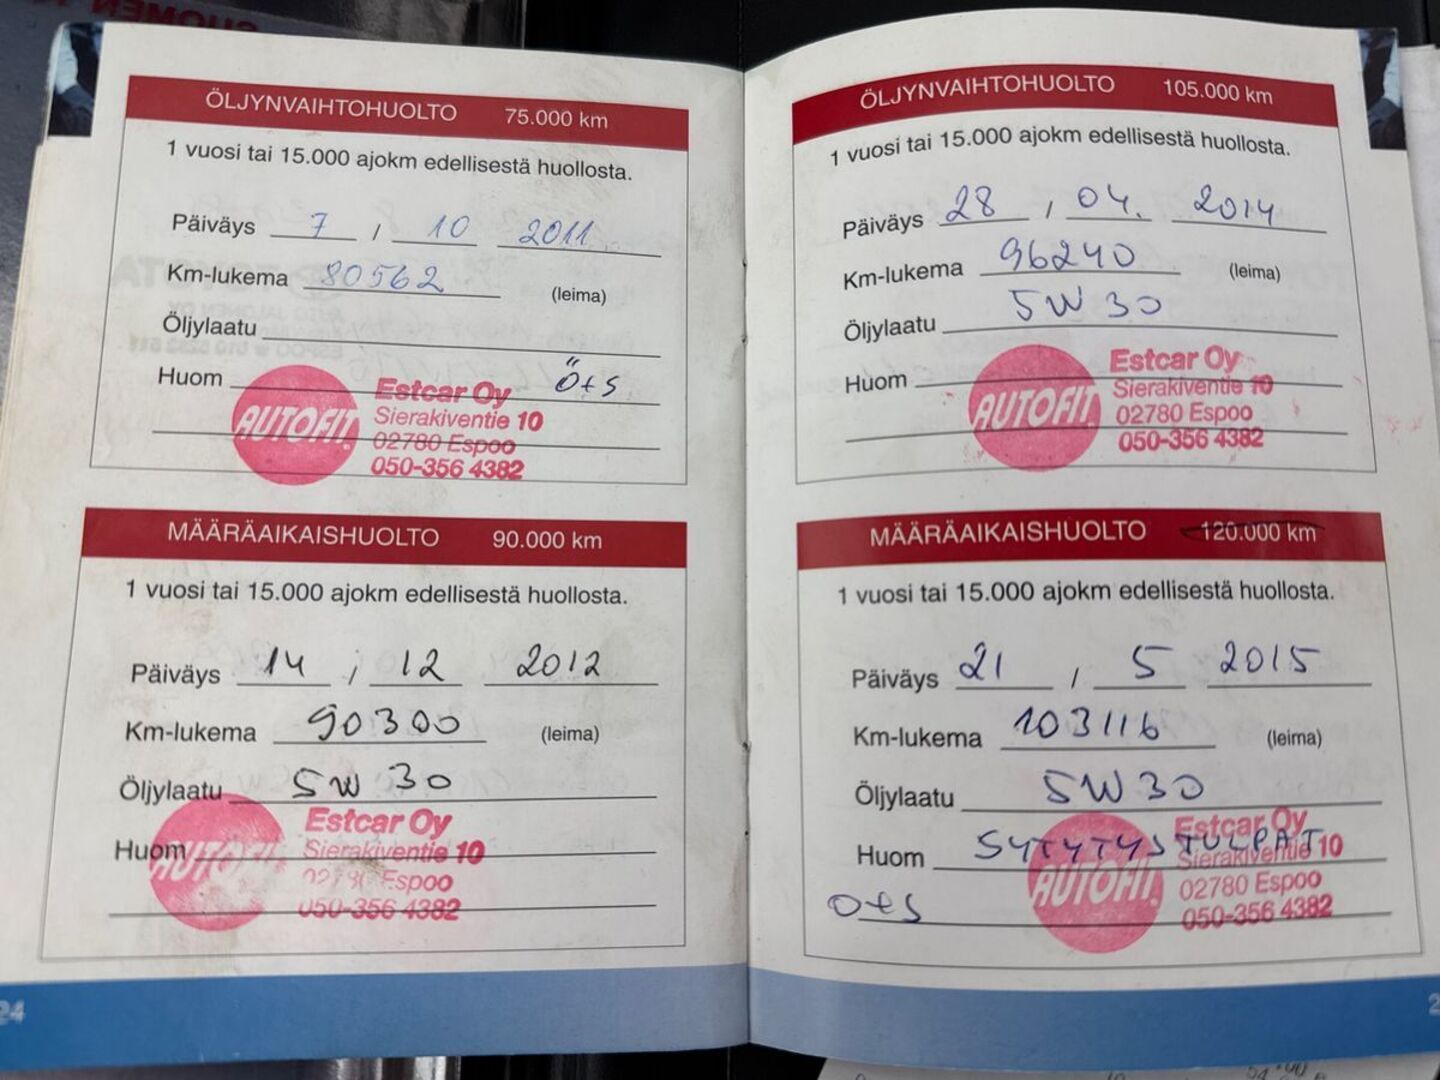 ÖLJYNVAIHTOHUOLTO 75.000 km
1 vuosi tai 15.000 ajokm edellisestä huollosta.
Päiväys 7 / 10 2011
Km-lukema 80562 (leima)
Öljylaatu
Huom Ö+S
AUTOFIT
Estcar Oy
Sierakiventie 10
02780 Espoo
050-356 4382
MÄÄRÄAIKAISHUOLTO 90.000 km
1 vuosi tai 15.000 ajokm edellisestä huollosta.
Päiväys 14 / 12 2012
Km-lukema 90300 (leima)
Öljylaatu 5W30
Huom
AUTOFIT
Estcar Oy
Sierakiventie 10
02780 Espoo
050-356 4382
24
ÖLJYNVAIHTOHUOLTO 105.000 km
1 vuosi tai 15.000 ajokm edellisestä huollosta.
Päiväys 28 / 04. 2014
Km-lukema 96240 (leima)
Öljylaatu 5W30
Huom
AUTOFIT
Estcar Oy
Sierakiventie 10
02780 Espoo
050-356 4382
MÄÄRÄAIKAISHUOLTO 120.000 km
1 vuosi tai 15.000 ajokm edellisestä huollosta.
Päiväys 21 / 5 2015
Km-lukema 103116 (leima)
Öljylaatu 5W30
Huom SYTYTYSTULPAT
O+S
AUTOFIT
Estcar Oy
Sierakiventie 10
02780 Espoo
050-356 4382